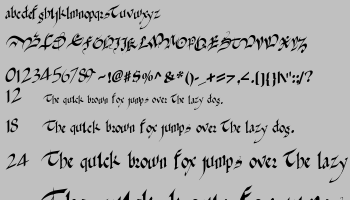 abcdefghijklmnopqrstuvwxyz
ABCDEFGHIJKLMNOPQRSTUVWXYZ
0123456789 ~!@#$%^&*()-_+=>,<.{}[]\|":;/?
12 The quick brown fox jumps over the lazy dog.
18 The quick brown fox jumps over the lazy dog.
24 The quick brown fox jumps over the lazy
The quick brown fox